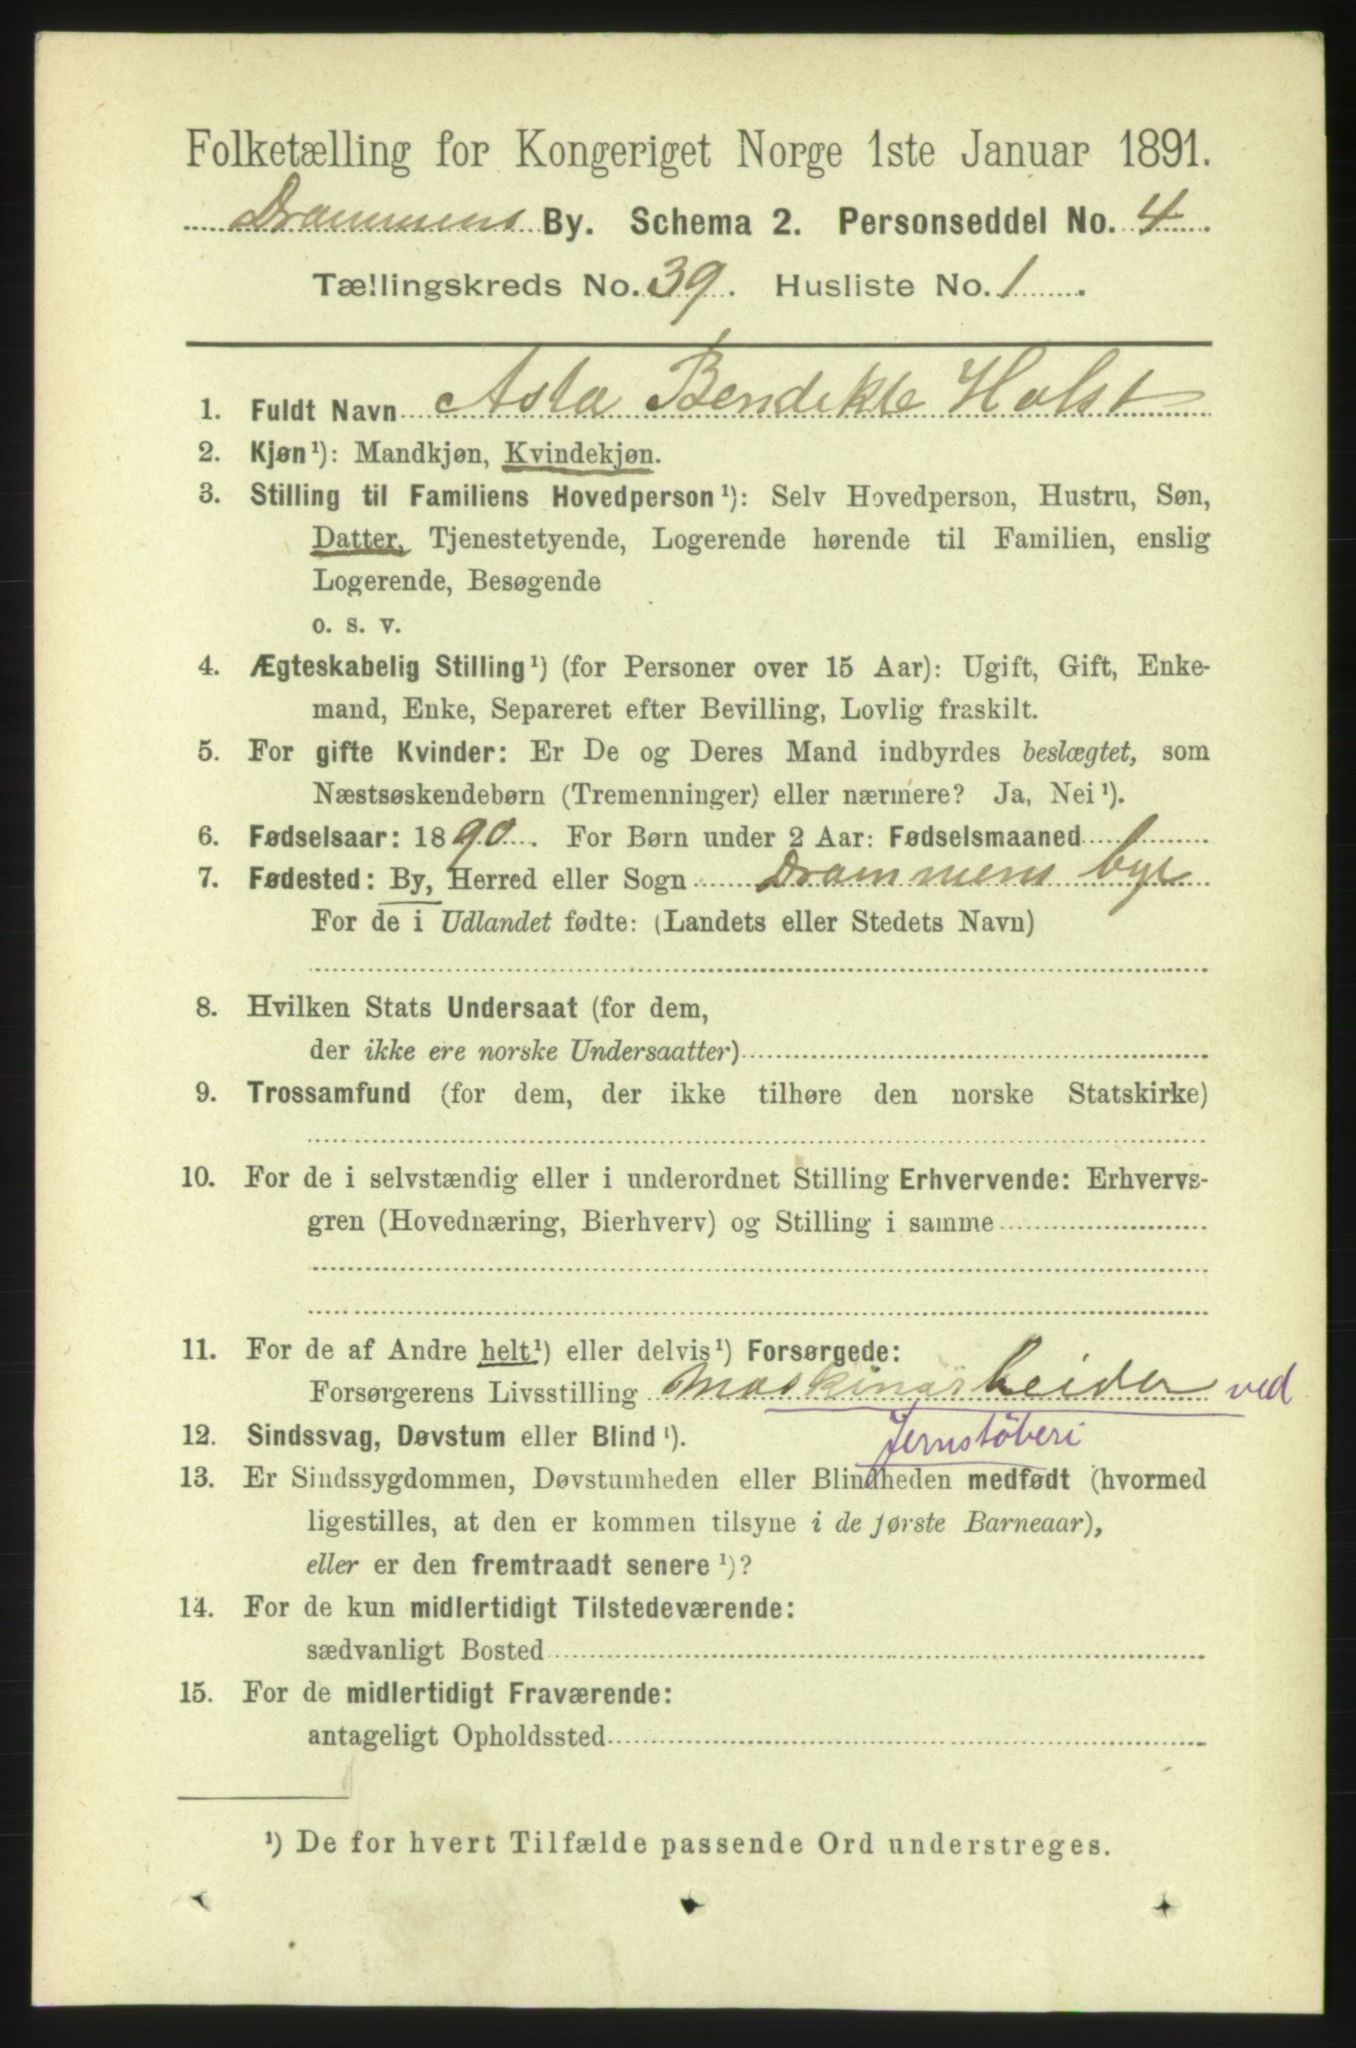 Folketælling for Kongeriget Norge 1ste Januar 1891.
Drammens By. Schema 2. Personseddel No. 4
Tællingskreds No. 39. Husliste No. 1
1. Fuldt Navn Asta Bendikte Holst
2. Kjøn¹): Mandkjøn, Kvindekjøn.
3. Stilling til Familiens Hovedperson¹): Selv Hovedperson, Hustru, Søn,
Datter, Tjenestetyende, Logerende hørende til Familien, enslig
Logerende, Besøgende
o. s. v.
4. Ægteskabelig Stilling¹) (for Personer over 15 Aar): Ugift, Gift, Enke-
mand, Enke, Separeret efter Bevilling, Lovlig fraskilt.
5. For gifte Kvinder: Er De og Deres Mand indbyrdes beslægtet, som
Næstsøskendebørn (Tremenninger) eller nærmere? Ja, Nei¹).
6. Fødselsaar: 1890. For Børn under 2 Aar: Fødselsmaaned 1
7. Fødested: By, Herred eller Sogn Drammens bye
For de i Udlandet fødte: (Landets eller Stedets Navn)
8. Hvilken Stats Undersaat (for dem,
der ikke ere norske Undersaatter)
9. Trossamfund (for dem, der ikke tilhøre den norske Statskirke)
10. For de i selvstændig eller i underordnet Stilling Erhvervende: Erhvervs-
gren (Hovednæring, Bierhverv) og Stilling i samme
11. For de af Andre helt¹) eller delvis¹) Forsørgede:
Forsørgerens Livsstilling Maskinarbeider ved
Jernstøberi
12. Sindssvag, Døvstum eller Blind¹).
13. Er Sindssygdommen, Døvstumheden eller Blindheden medfødt (hvormed
ligestilles, at den er kommen tilsyne i de første Barneaar),
eller er den fremtraadt senere¹)?
14. For de kun midlertidigt Tilstedeværende:
sædvanligt Bosted
15. For de midlertidigt Fraværende:
antageligt Opholdssted
¹) De for hvert Tilfælde passende Ord understreges.